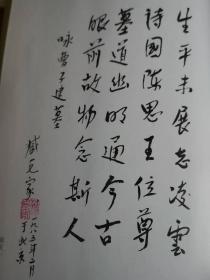 生平未展志凌雲
詩國陳思王位尊
墓道幽明通今古
眼前故物念斯人
咏曹子建墓
臧克家
一九八三年二月
于北京